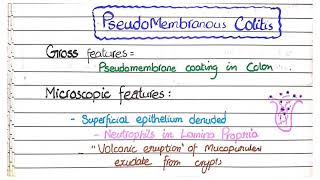 PseudoMembranous Colitis
Gross features =
Pseudomembrane coating in Colon.
Microscopic features :
- Superficial epithelium denuded
- Neutrophils in Lamina Propria
- "Volcanic eruption" of Mucopurulen
exudate from crypts